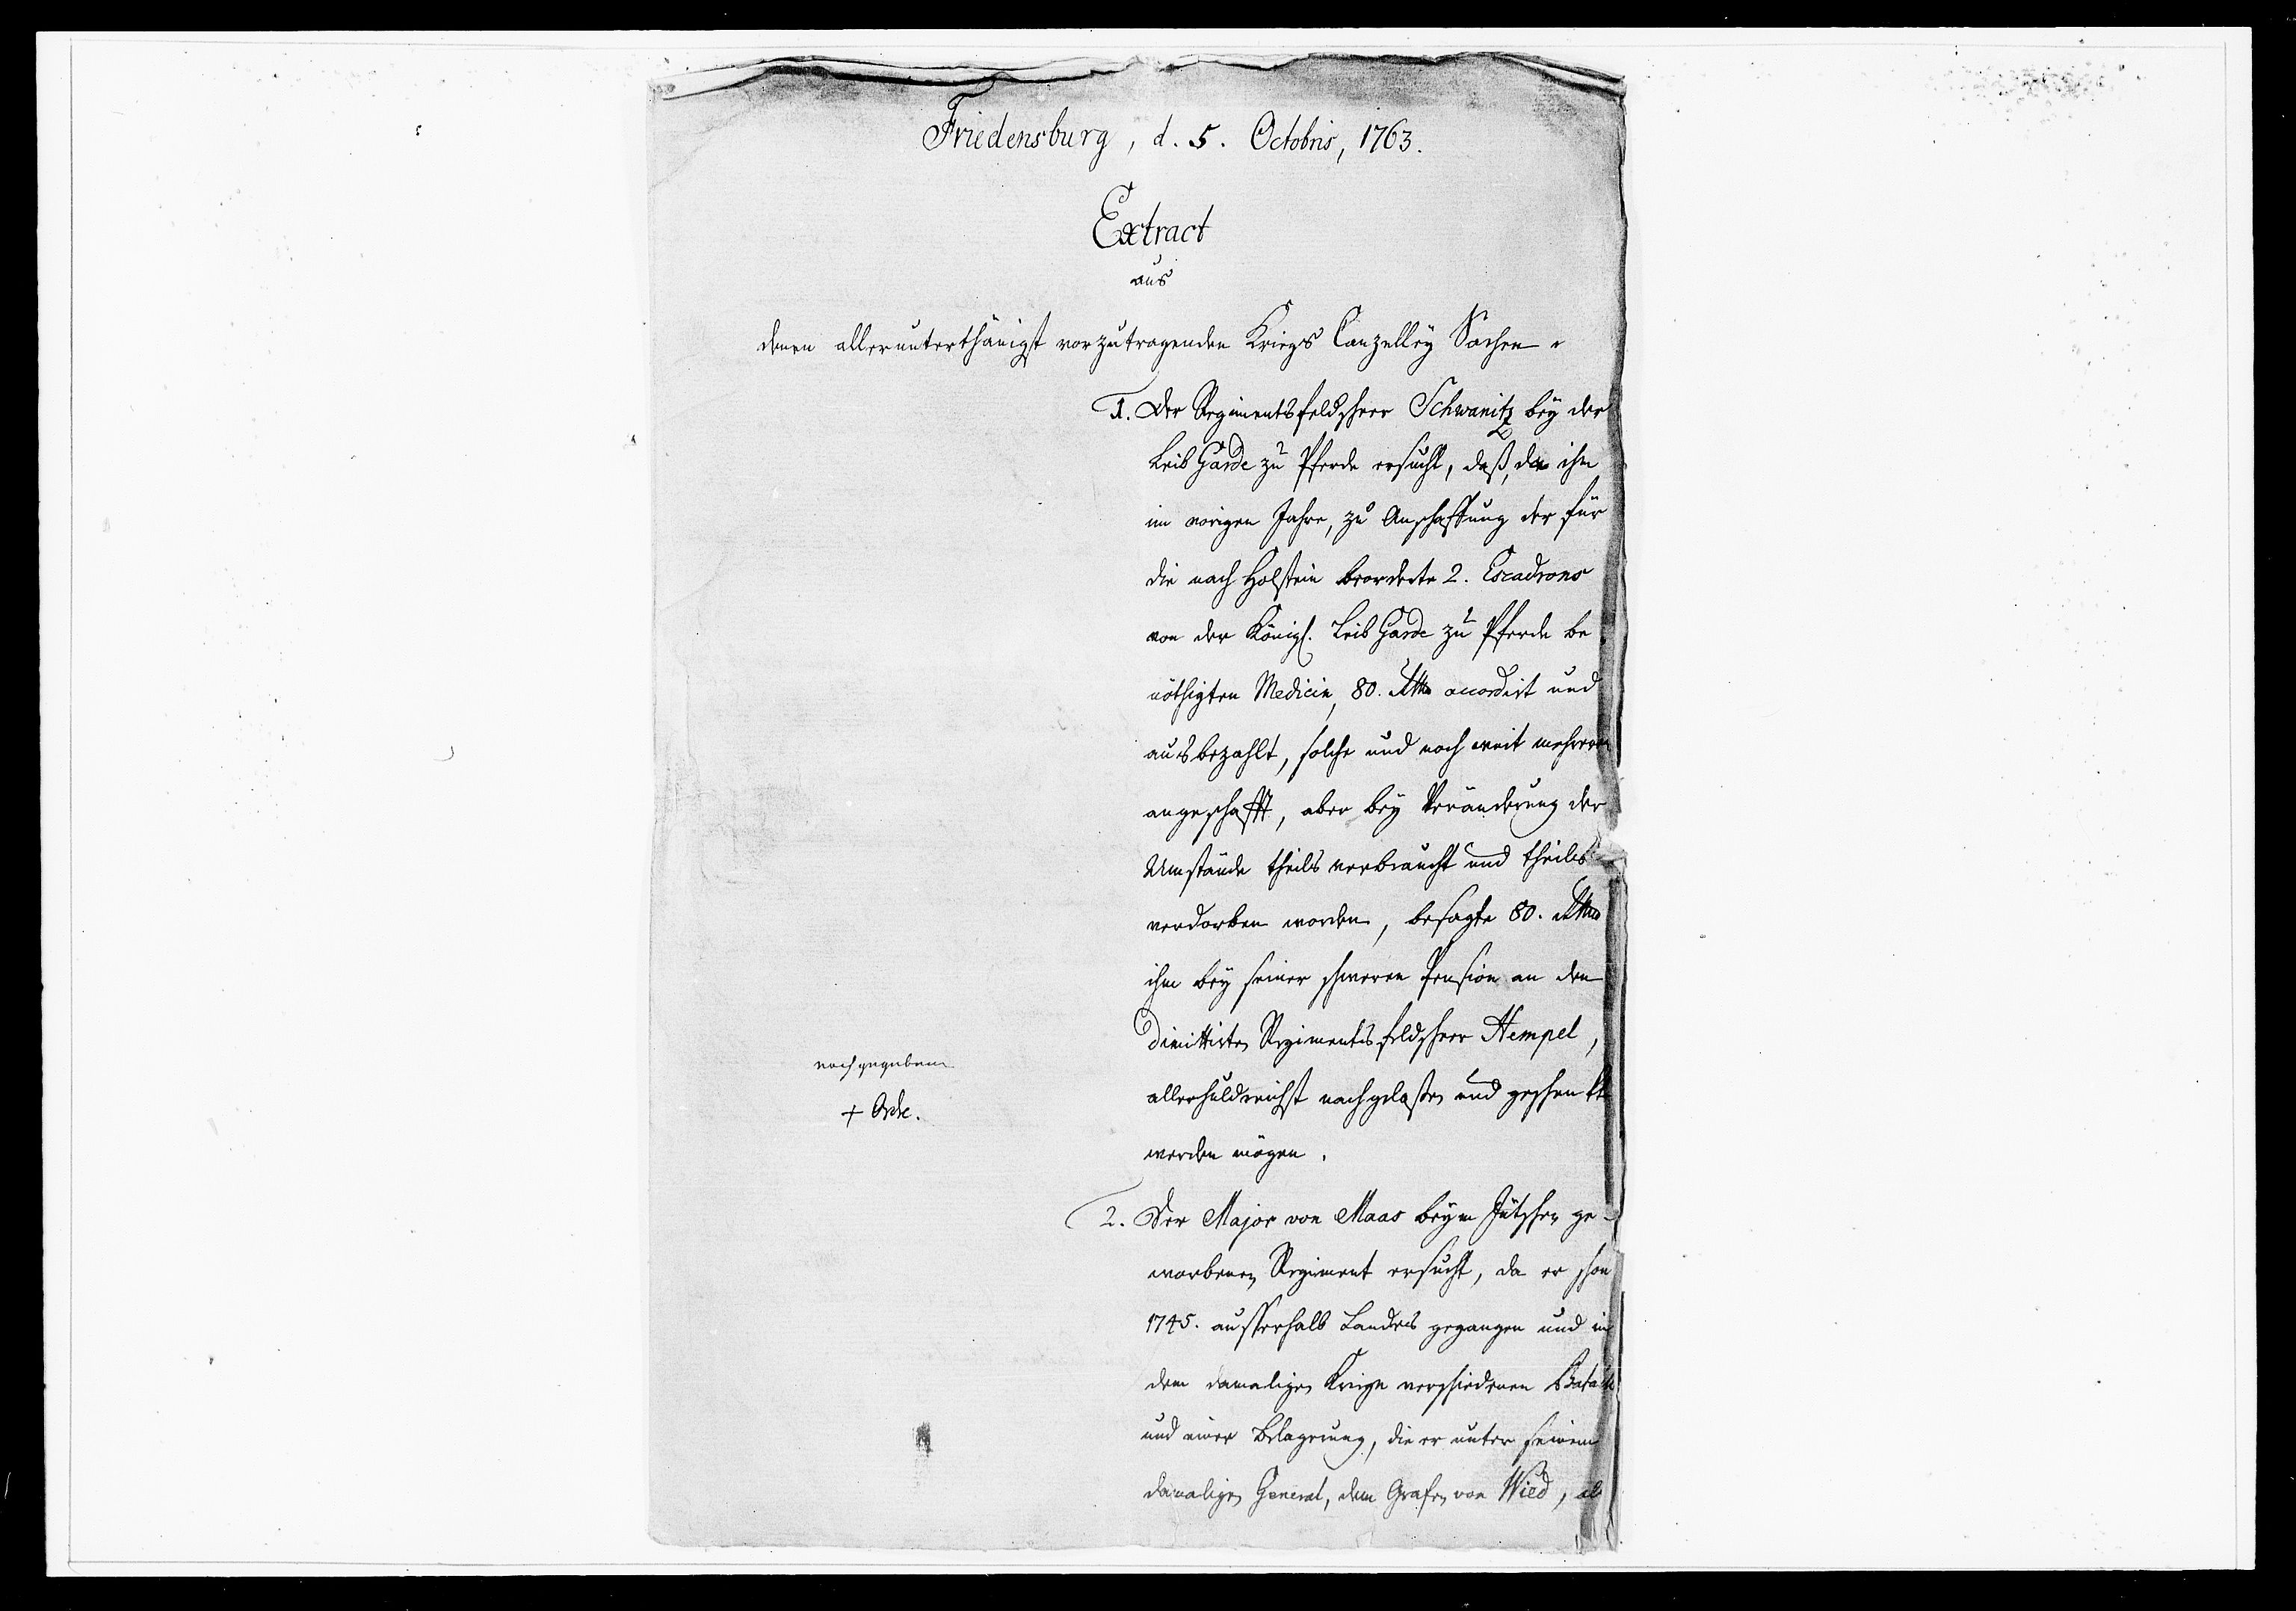 Friedensburg, d. 5. Octobris, 1763.
Extract
aus
denen allerunterthänigst vorzutragenden Kriegs Canzelley Sachen.
1. Der Regimentsfeldscheer Schwanitz bey der
Leib Garde zu Pferde ersucht, daß, da ihm
im vorigen Jahre, zu Anschaffung der für
die nach Holstein beorderte 2. Escadrons
von der Königl. Leib Garde zu Pferde be
nöthigten Medicin, 80. Rthlr accordirt und
ausbezahlt, solche und noch weit mehrere
angeschafft, aber bey Veränderung der
Umstände theils verbraucht und theils
verdorben worden, besagte 80. Rthlr
ihm bey seiner schweren Pension an den
dimittirten Regimentsfeldscheer Hempel,
allerhuldreichst nachgelaßen und geschenkt
werden mögen.
nachgegeben
+ Ordr.
2. Der Major von Maas beym Jütschen ge-
worbenen Regiment ersucht, da er schon
1745. ausserhalb Landes gegangen und in
dem damaligen Kriege verschiedenen Batail
und einer Belagerung, die er unter seinem
damaligen General, dem Grafen von Wied, al